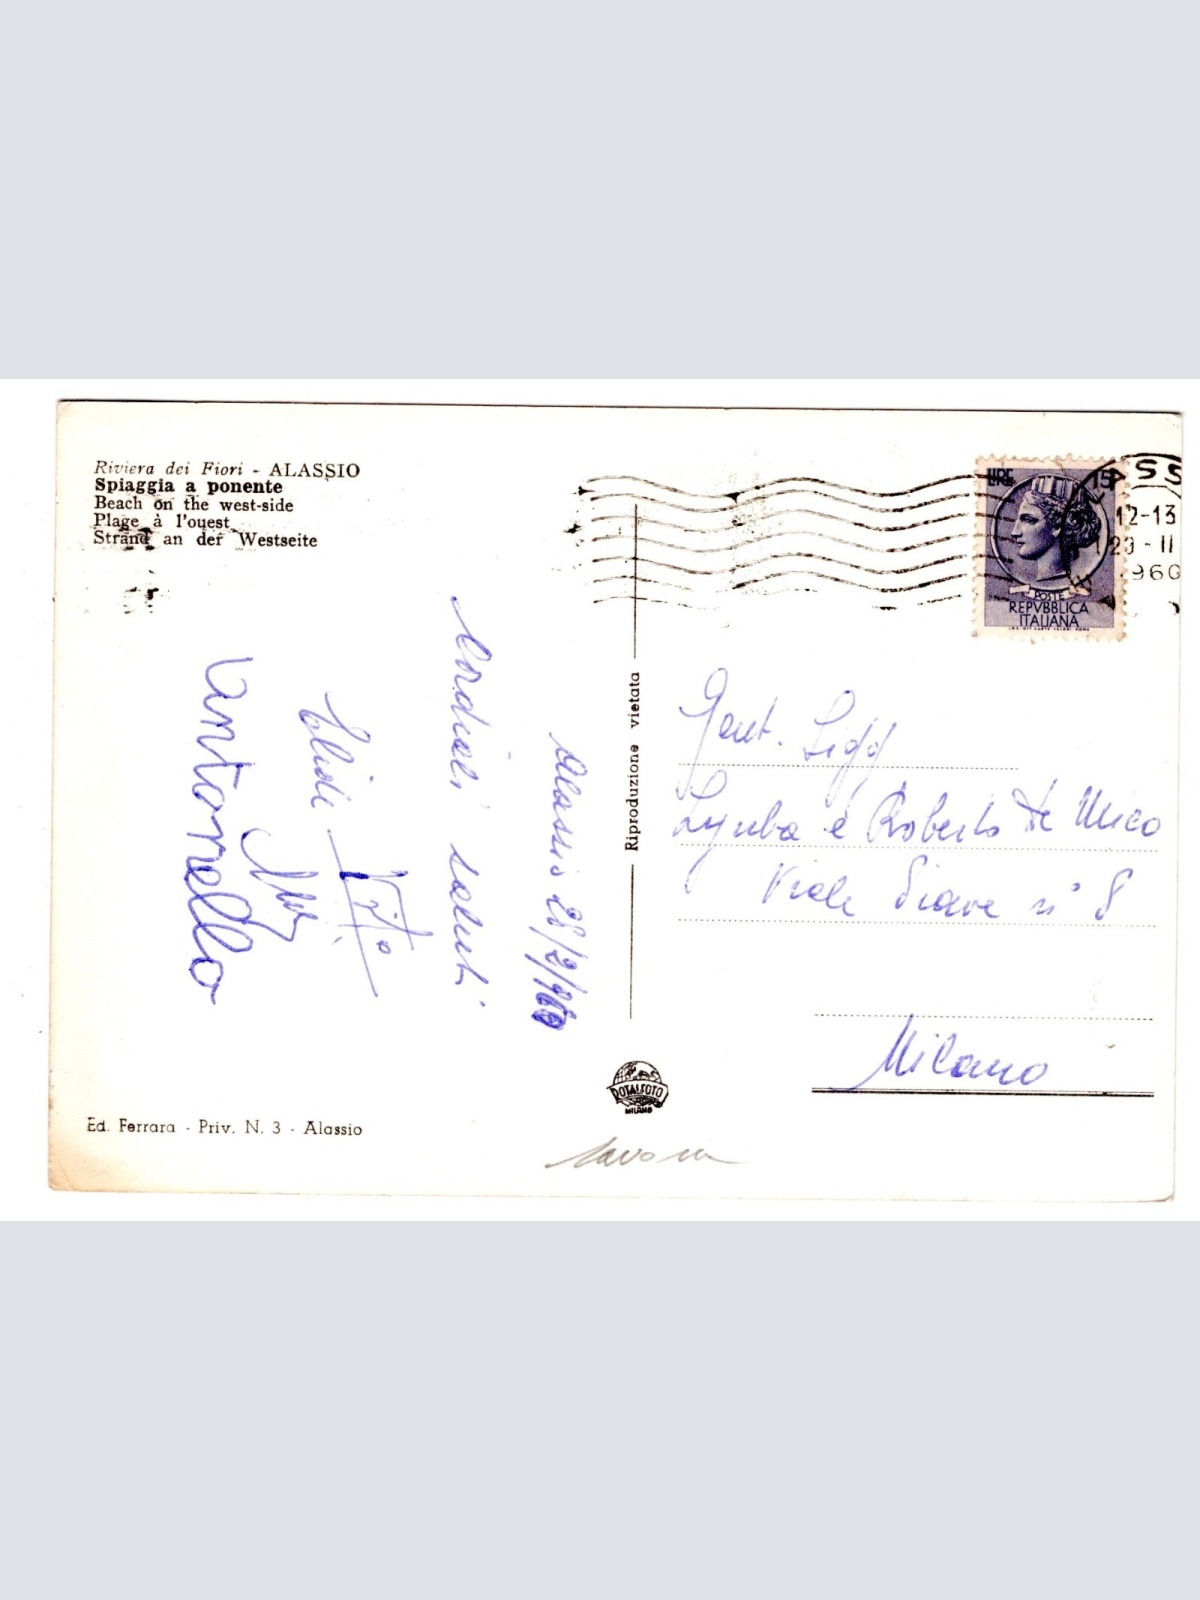 Riviera dei Fiori - ALASSIO
Spiaggia a ponente
Beach on the west-side
Plage à l'ouest
Strand an der Westseite
Alassio 28/2/960
Cordiali saluti
Vito
Antonello
Ed. Ferrara - Priv. N. 3 - Alassio
Riproduzione vietata
ROTALFOTO
MILANO
LIRE 15
POSTE
REPVBBLICA
ITALIANA
ASS
12-13
- II
960
Gent. Sigg
e Roberto De Mico
Viale Piave n° 8
Milano
Savona